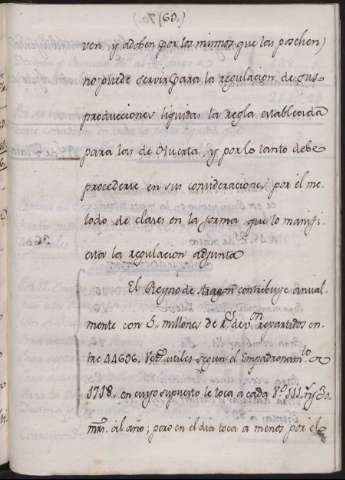 ven y adoben por los mismos que las posehen)
no puede servir para la regulacion de sus
producciones liquidas la regla establecida
para las de Huerta, y por lo tanto debe
procederse en su consideraciones por el me-
todo de clases en la forma que lo manifi-
esta la regulacion adjunta
El Reyno de Aragon contribuye anual
mente con 5. millones de Rs. de von. repartidos en-
tre 44606. Vos. utiles segun el Empadronamto. de
1718. en cuyo supuesto le toca a cada Vo. 111. rs 30.
mrs. al año; pero en el dia toca a menos por el